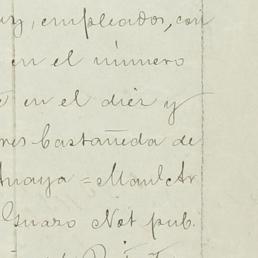 empleados, con
en el número
en el diez y
Castañeda de
Anaya = Manl. Ar
Guazo Not pub.